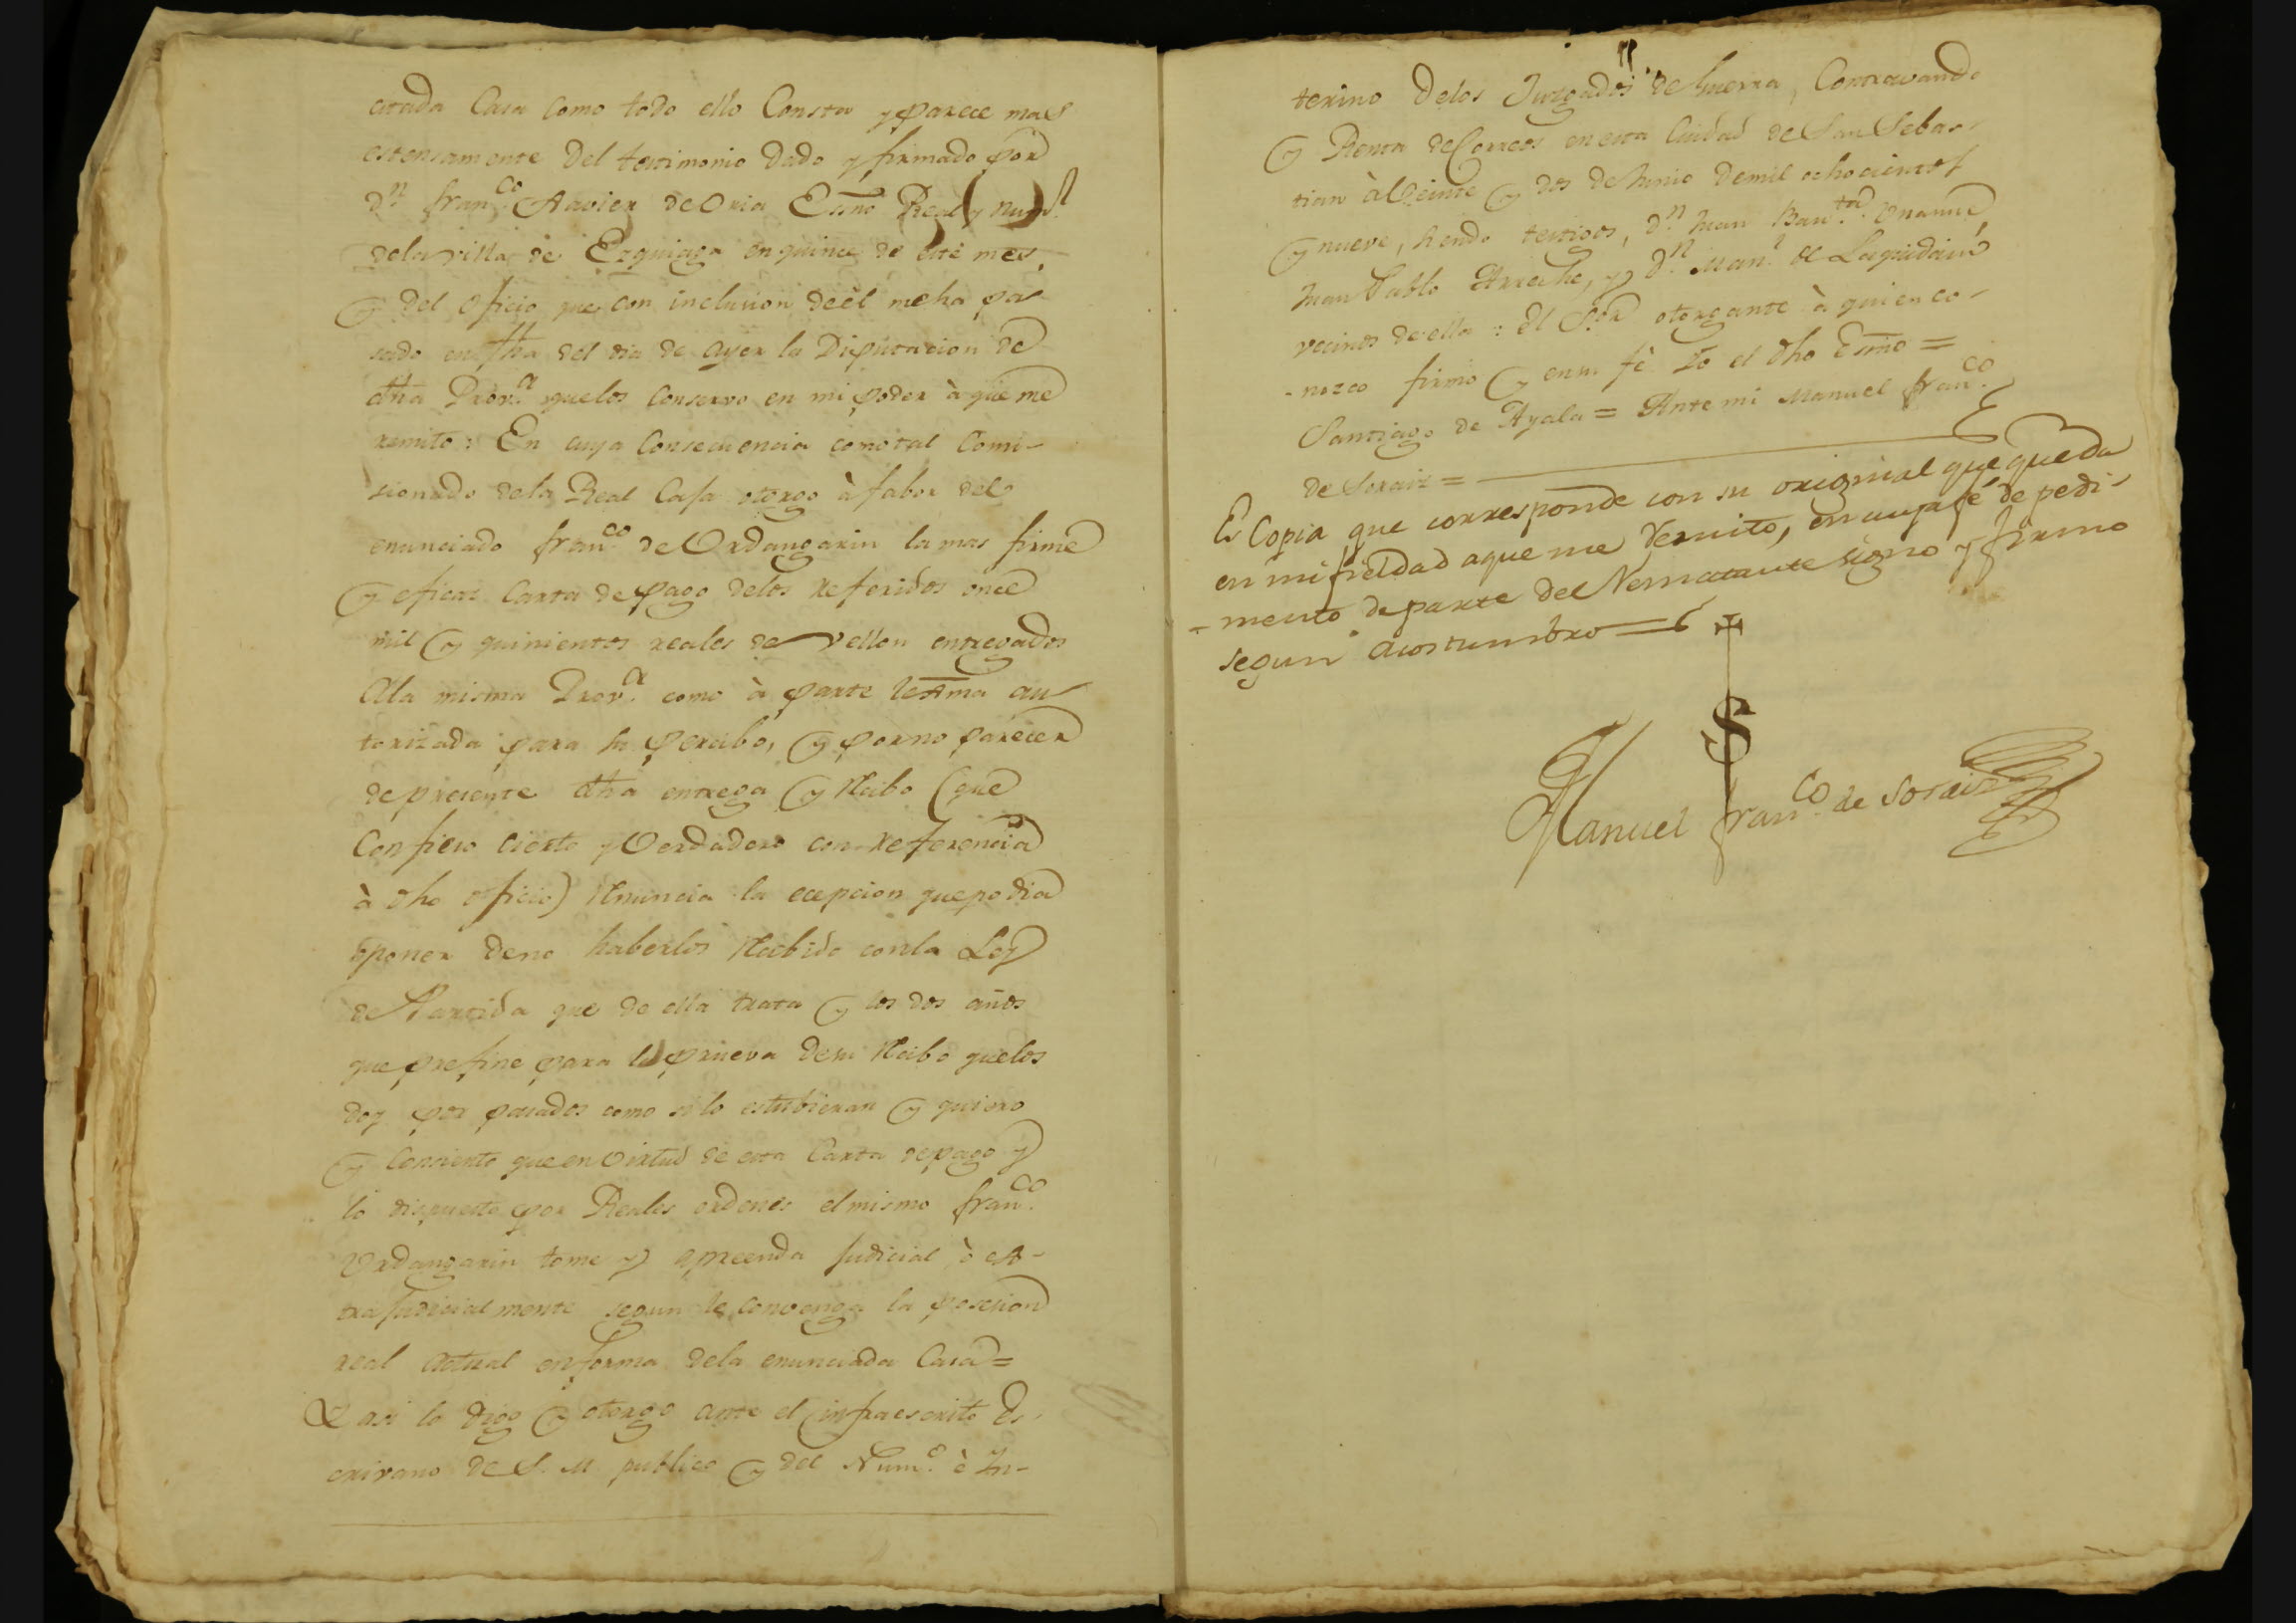 citada Casa como todo ello Consta y parece mas
estensamente del testimonio dado y firmado por
Dn. Franco. Xavier de Oria Essno Real y Numl.
de la villa de Ezquiaga en quince de este mes,
y del oficio que con inclusion de èl me ha pa-
sado en fha del dia de ayer la Diputacion de
dha Prova. que los conservo en mi poder à que me
remito: En cuya Consecuencia como tal Comi-
sionado de la Real Casa otorgo à fabor del
enunciado Franco. de Ordangarin la mas firme
y eficaz Carta de pago de los referidos once
mil y quinientos reales de vellon entregados
a la misma Prova. como à parte lexitma au-
torizada para su percibo, y por no parecer
de presente dha entrega y Recibo (que
Confieso cierto y Verdadero con referencia
à dho oficio) Renuncia la ecepcion que podia
oponer de no haberlos Recibido con la Ley
de Partida que de ella trata y los dos años
que prefine para la prueva de su Recibo que los
doy por pasados como si lo estubieran y quiero
y Consiento que en Virtud de esta Carta de pago y
lo dispuesto por Reales ordenes el mismo Franco.
Urdangarin tome y apreenda Judicial ò ex-
trajudicialmente segun le convenga la posesion
real actual en forma de la enunciada Casa=
Y asi lo digo y otorgo ante el infraescrito Es-
crivano de S. M. publico y del Numo. è In-
terino de los Juzgados de Guerra, Contravando
y Renta de Correos en esta Ciudad de San Sebas-
tian à Veinte y dos de Junio de mil ochocientos
y nueve, siendo testigos, Dn. Juan Bauta. Unanue,
Juan Pablo Arreche, y Dn. Manl. de
vecinos de ella: el Sor. otorgante à quien co-
-nozco firmò y en su fè Yo el dho Essno =
Santiago de Ayala = Ante mi Manuel Franco.
de Soraiz =
Es Copia que corresponde con su original que queda
en mi fieldad a que me Remito, en cuya fé de pedi-
-mento de parte del Rematante signo y firmo
segun acostumbro =
Manuel Franco. de Soraiz